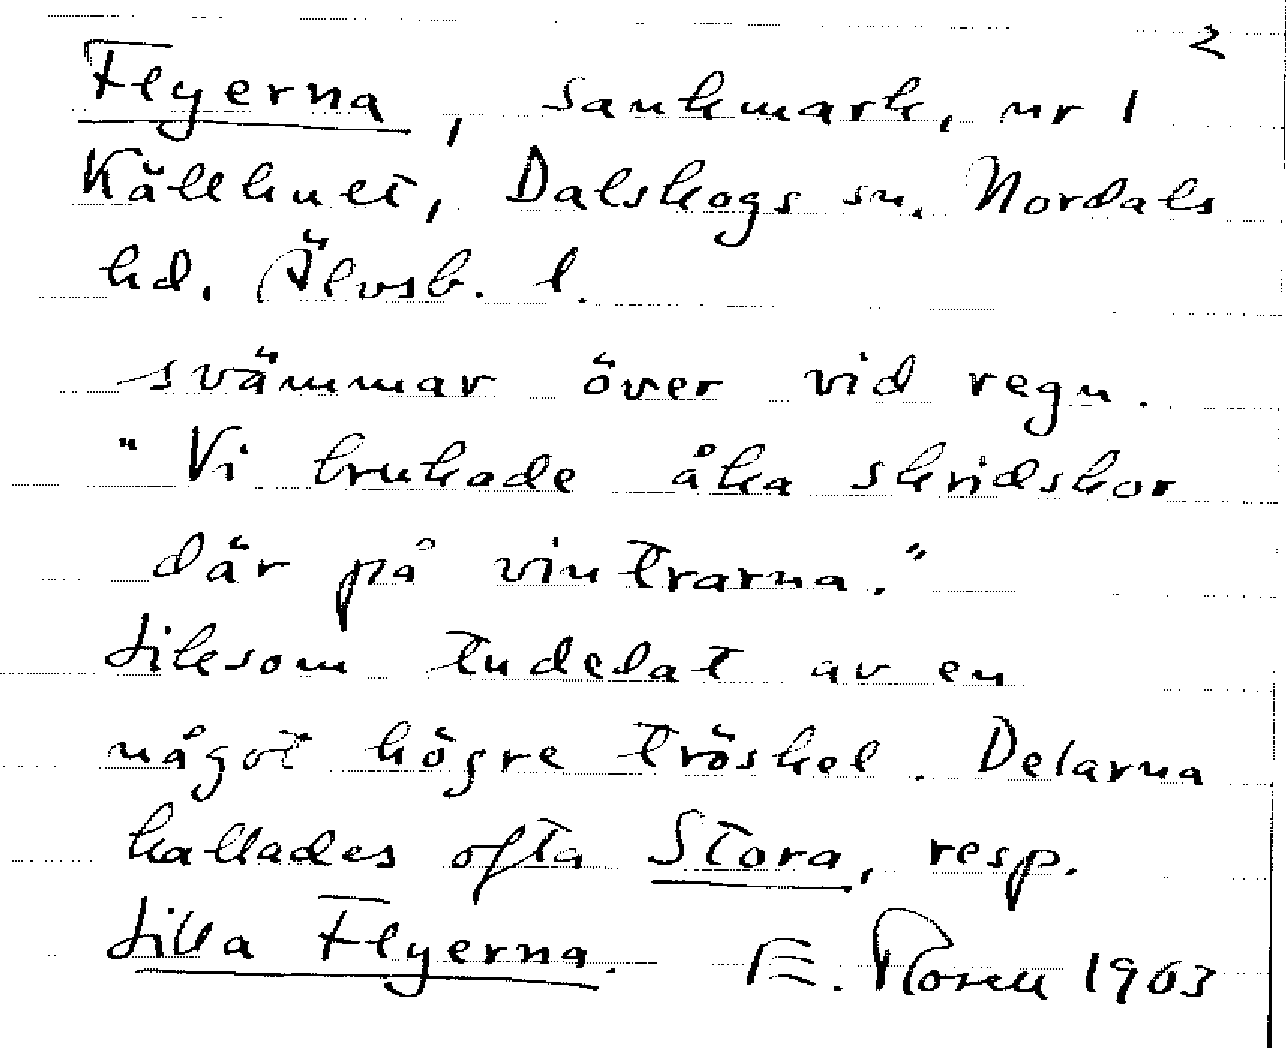 2
Flyerna, sankmark, nr 1
Källhult, Dalskogs sn. Nordals
hd. Älvsb. l.
svämmar över vid regn.
"Vi brukade åka skridskor
där på vintrarna."
Liksom tudelat av en
något högre tröskel. Delarna
kallades ofta Stora, resp.
Lilla Flyerna. E. Rosell 1963